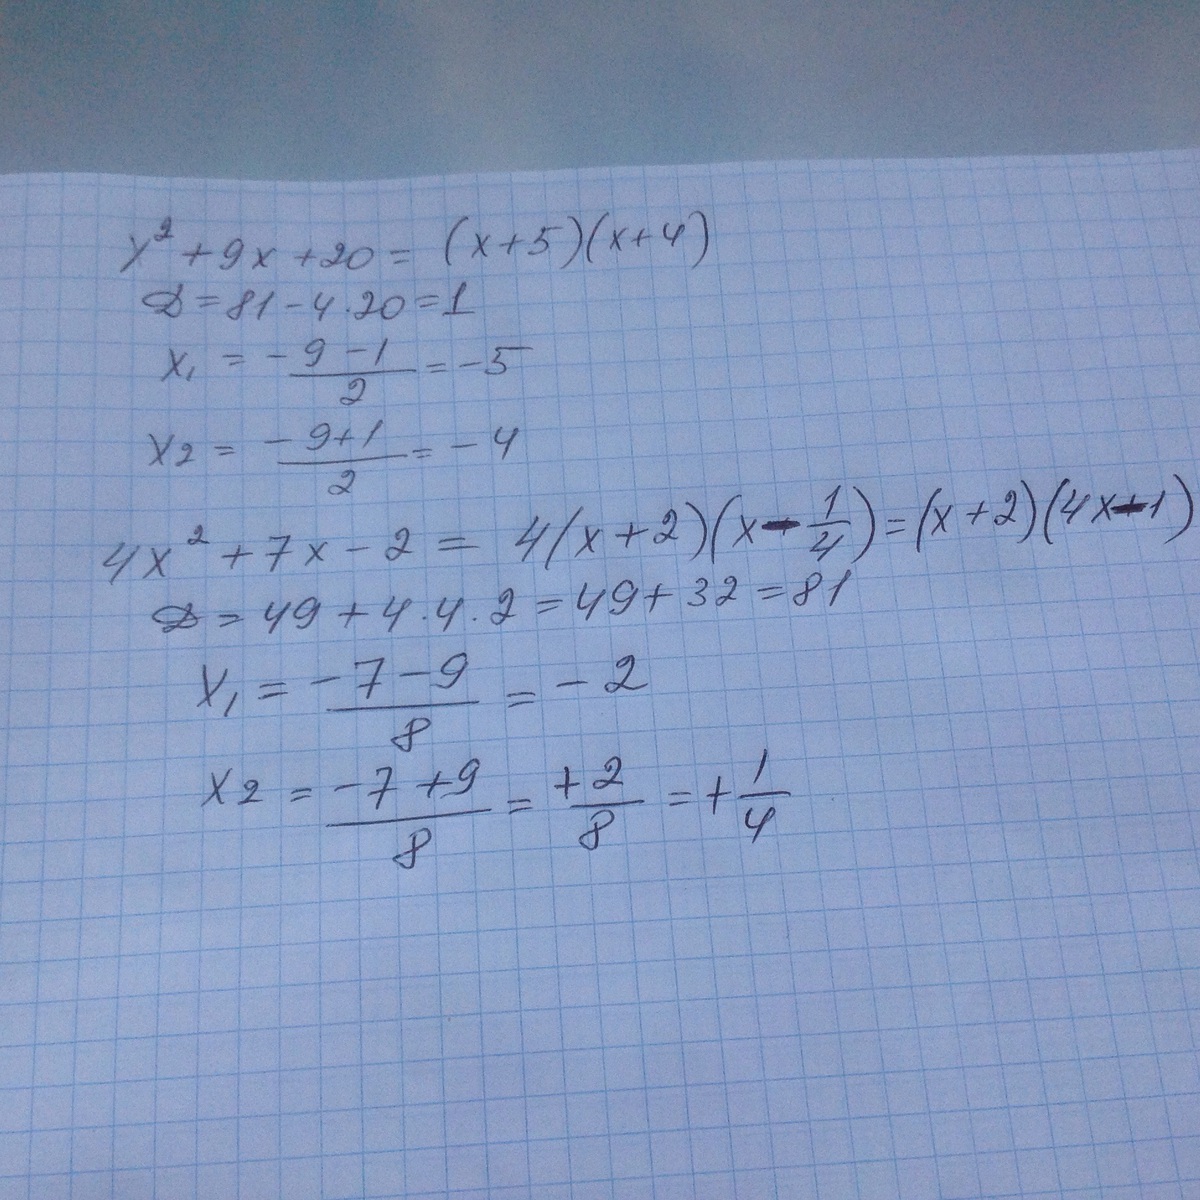 x² + 9x + 20 = (x + 5)(x + 4)
D = 81 - 4·20 = 1
x₁ = (-9 - 1)/2 = -5
x₂ = (-9 + 1)/2 = -4
4x² + 7x - 2 = 4(x + 2)(x - 1/4) = (x + 2)(4x - 1)
D = 49 + 4·4·2 = 49 + 32 = 81
x₁ = (-7 - 9)/8 = -2
x₂ = (-7 + 9)/8 = +2/8 = +1/4